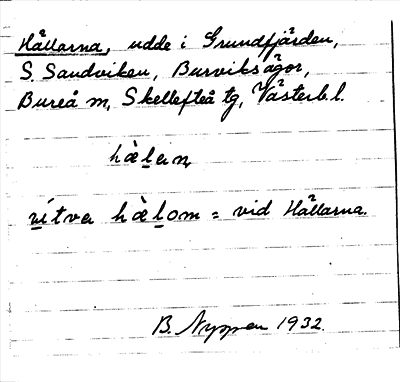 Hällarna, udde i Grundfjärden,
S. Sandviken, Burviks ägor,
Bureå sn, Skellefteå tg, Västerb. l.
hæ̀l̲an
ví̲tva hæ̀l̲om = vid Hällarna.
B. Nyppen 1932.